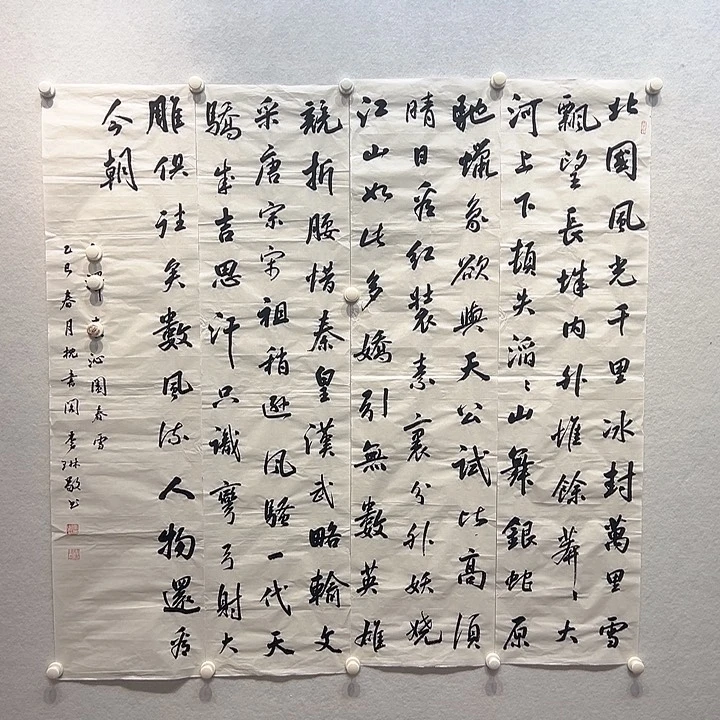 北國風光千里冰封萬里雪
飄望長城内外惟餘莽々大
河上下頓失滔々山舞銀蛇原
馳蠟象欲與天公試比高須
晴日看红裝素裹分外妖嬈
江山如此多嬌引無數英雄
競折腰惜秦皇漢武略輸文
采唐宗宋祖稍遜风騷一代天
驕成吉思汗只識彎弓射大
雕俱往矣數风流人物還看
今朝
沁園春雪
乙巳春月 書 琳敬书